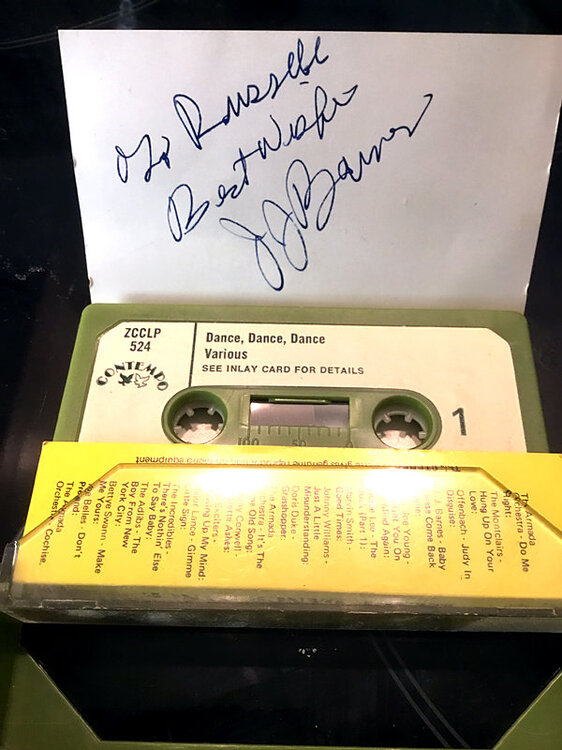 To Russell
Best Wishes
J J Barnes
ZCCLP
524
CONTEMPO
Dance, Dance, Dance
Various
SEE INLAY CARD FOR DETAILS
100 50
1
gives genuine reproduction
equipment
The Armada
Orchestra - Do Me
Right:
The Montclairs -
Hung Up On Your
Love:
Offenbach - Judy In
Disguise:
J.J. Barnes - Baby
Please Come Back
Young -
You On
Mind Again:
Lee - The
(Part 1):
Smith -
Good Times:
Johnny Williams -
Just A Little
Misunderstanding:
Doris Duke -
Grasshopper:
It's The
Old Song:
Ashes:
Up My Mind:
Dance - Gimme
Sign:
The Incredibles -
There's Nothin' Else
To Say Baby:
The Adlibs - The
Boy From New
York City:
Bettye Swann - Make
Me Yours:
Belles - Don't
Pretend:
The Armada
Orchestra - Cochise.